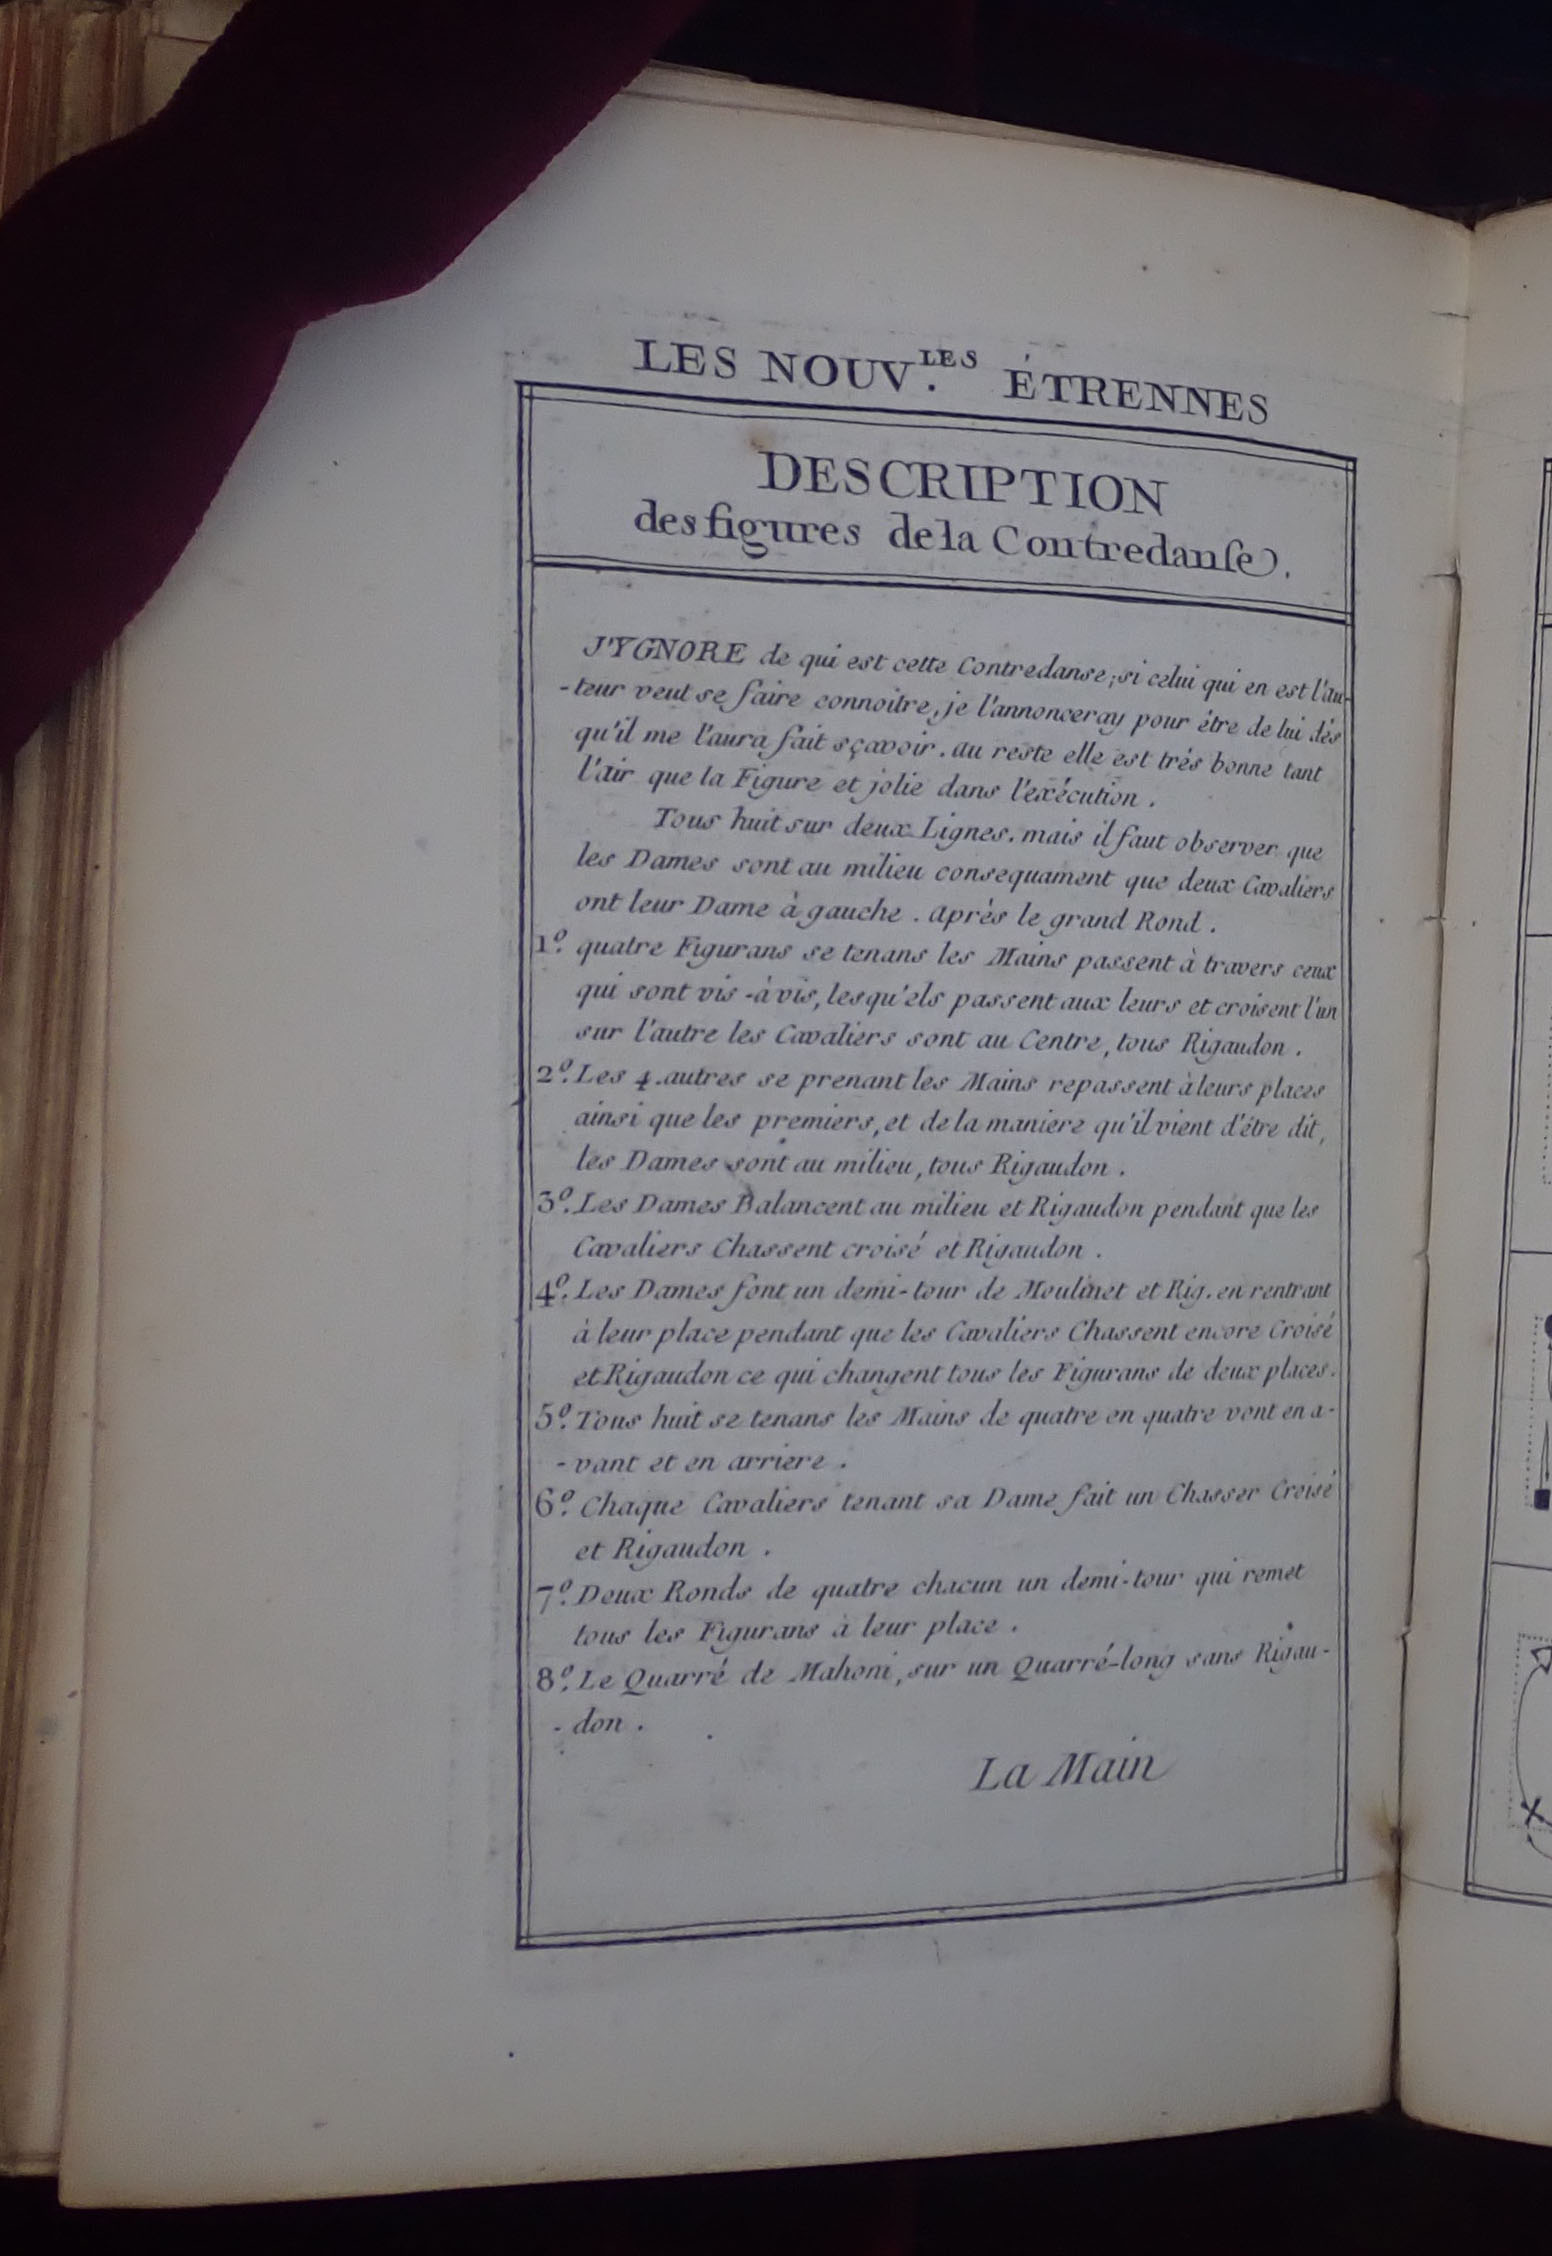 LES NOUV.LES ÉTRENNES
DESCRIPTION
des figures de la Contredanse.
J'YGNORE de qui est cette Contredanse; si celui qui en est l'au-
-teur veut se faire connoitre, je l'annonceray pour être de lui dés
qu'il me l'aura fait sçavoir. au reste elle est trés bonne tant
l'air que la Figure et jolie dans l'exécution.
Tous huit sur deux Lignes. mais il faut observer que
les Dames sont au milieu consequament que deux Cavaliers
ont leur Dame à gauche. Aprés le grand Rond.
1º. quatre Figurans se tenans les Mains passent à travers ceux
qui sont vis-à vis, lesqu'els passent aux leurs et croisent l'un
sur l'autre les Cavaliers sont au Centre, tous Rigaudon.
2º. Les 4. autres se prenant les Mains repassent à leurs places
ainsi que les premiers, et de la maniere qu'il vient d'être dit,
les Dames sont au milieu, tous Rigaudon.
3º. Les Dames Balancent au milieu et Rigaudon pendant que les
Cavaliers Chassent croisé et Rigaudon.
4º. Les Dames font un demi-tour de Moulinet et Rig. en rentrant
à leur place pendant que les Cavaliers Chassent encore Croisé
et Rigaudon ce qui changent tous les Figurans de deux places.
5º. Tous huit se tenans les Mains de quatre en quatre vont en a-
-vant et en arriere.
6º. Chaque Cavaliers tenant sa Dame fait un Chasser Croisé
et Rigaudon.
7º. Deux Ronds de quatre chacun un demi-tour qui remet
tous les Figurans à leur place.
8º. Le Quarré de Mahoni, sur un Quarré-long sans Rigau-
-don.
La Main